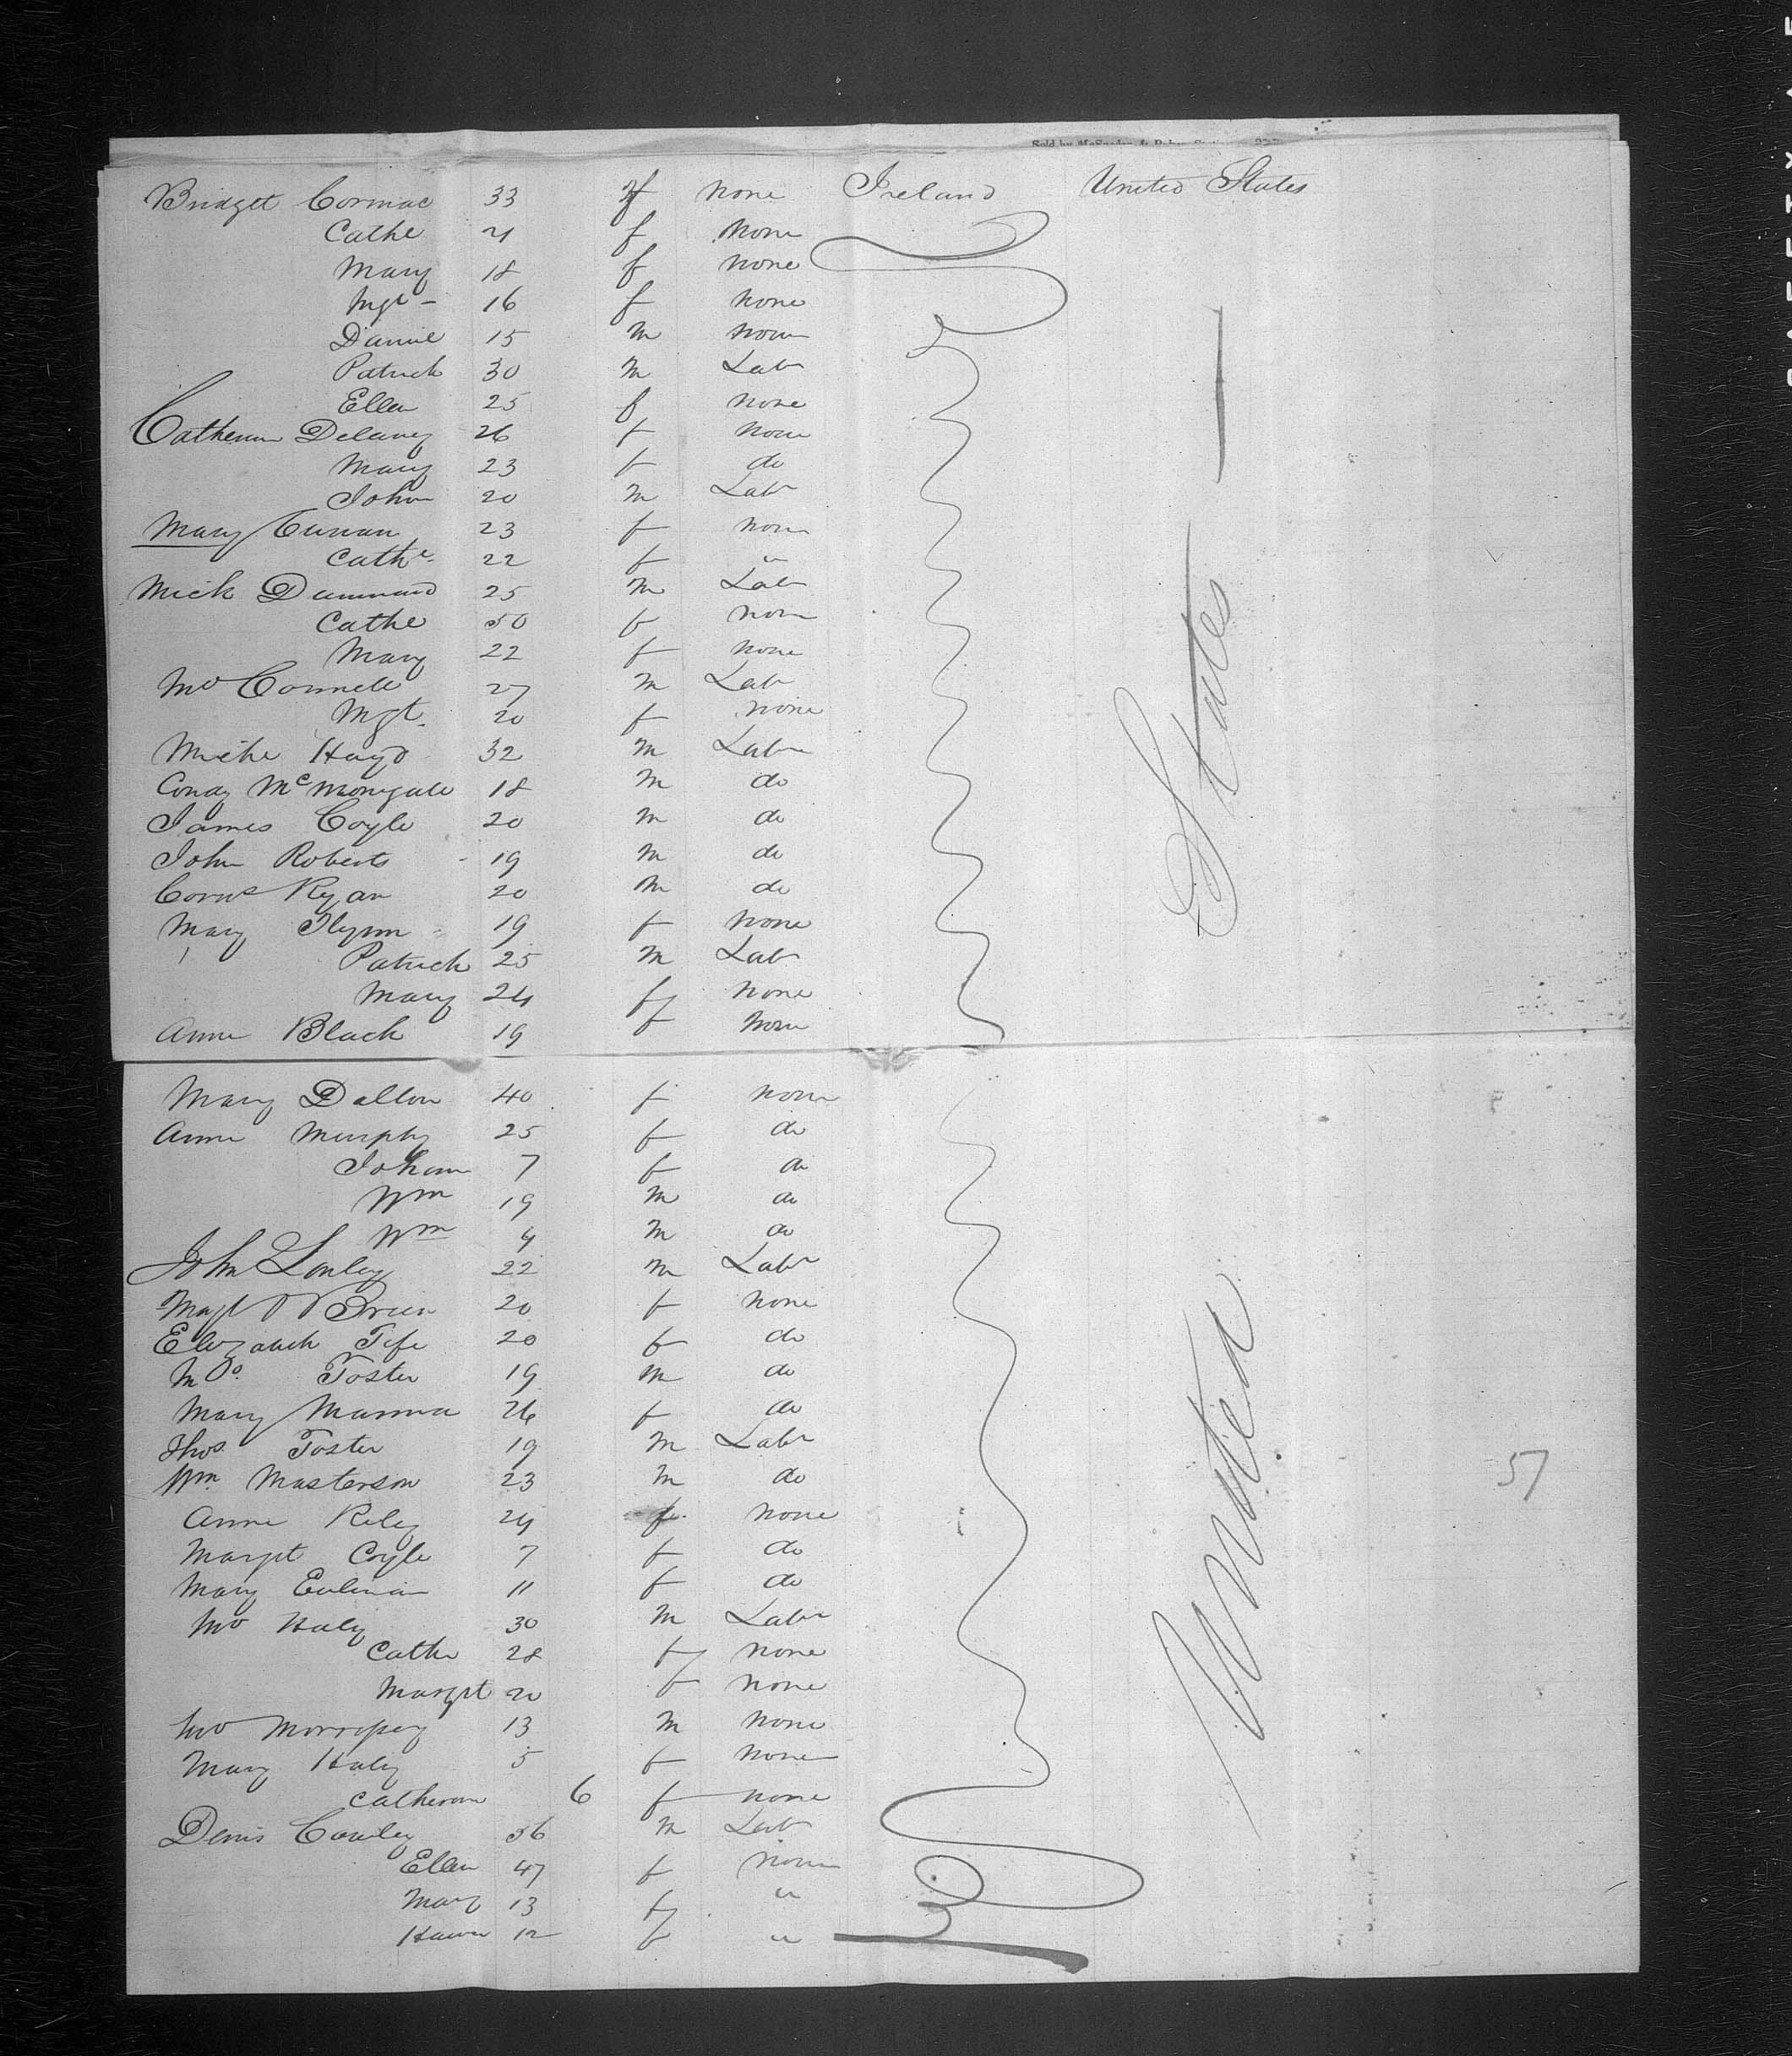 Bridget Cormac 33 f none Ireland United States
Cathe 21 f none
Mary 18 f none
Mgt - 16 f none
Daniel 15 m none
Patrick 30 m Labr
Ellen 25 f none
Catherine Delaney 26 f none
Mary 23 f do
John 20 m Labr
Mary Curran 23 f none
Cathe 22 f "
Mick 25 m Labr
Cathe 50 f none
Mary 22 f none
Connell 27 m Labr
Mgt. 20 f none
Miche Hayd 32 m Labr
Condy McMonegale 18 m do
James Coyle 20 m do
John Roberts 19 m do
Corns Ryan 20 m do
Mary Flynn 19 f none
Patrick 25 m Labr
Mary 24 f none
Anne Black 19 f none
States
Mary Dallon 40 f none
Anne Murphy 25 f do
Johann 7 f do
Wm 19 m do
Wm 4 m do
John 22 m Labr
Magt O'Brien 20 f none
Elizabeth Fife 20 f do
Foster 19 m do
Mary Manna 26 f do
Thos. Foster 19 m Labr
Wm. Masterson 23 m do
Anne Riley 24 f none
Margt Coyle 7 f do
Mary 11 f do
Haley 30 m Labr
Cathe 28 f none
Margrt 20 f none
13 m none
Mary Haley 5 f none
Catherine 6 f none
Denis Cowley 56 m Labr
Ellen 47 f none
Mary 13 f "
12 f "
United
57